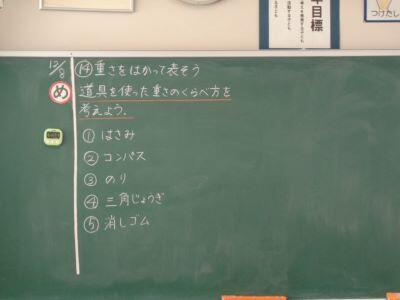 12/8
⑭重さをはかって表そう
め
道具を使った重さのくらべ方を
考えよう.
① はさみ
② コンパス
③ のり
④ 三角じょうぎ
⑤ 消しゴム
年目標
つけたし